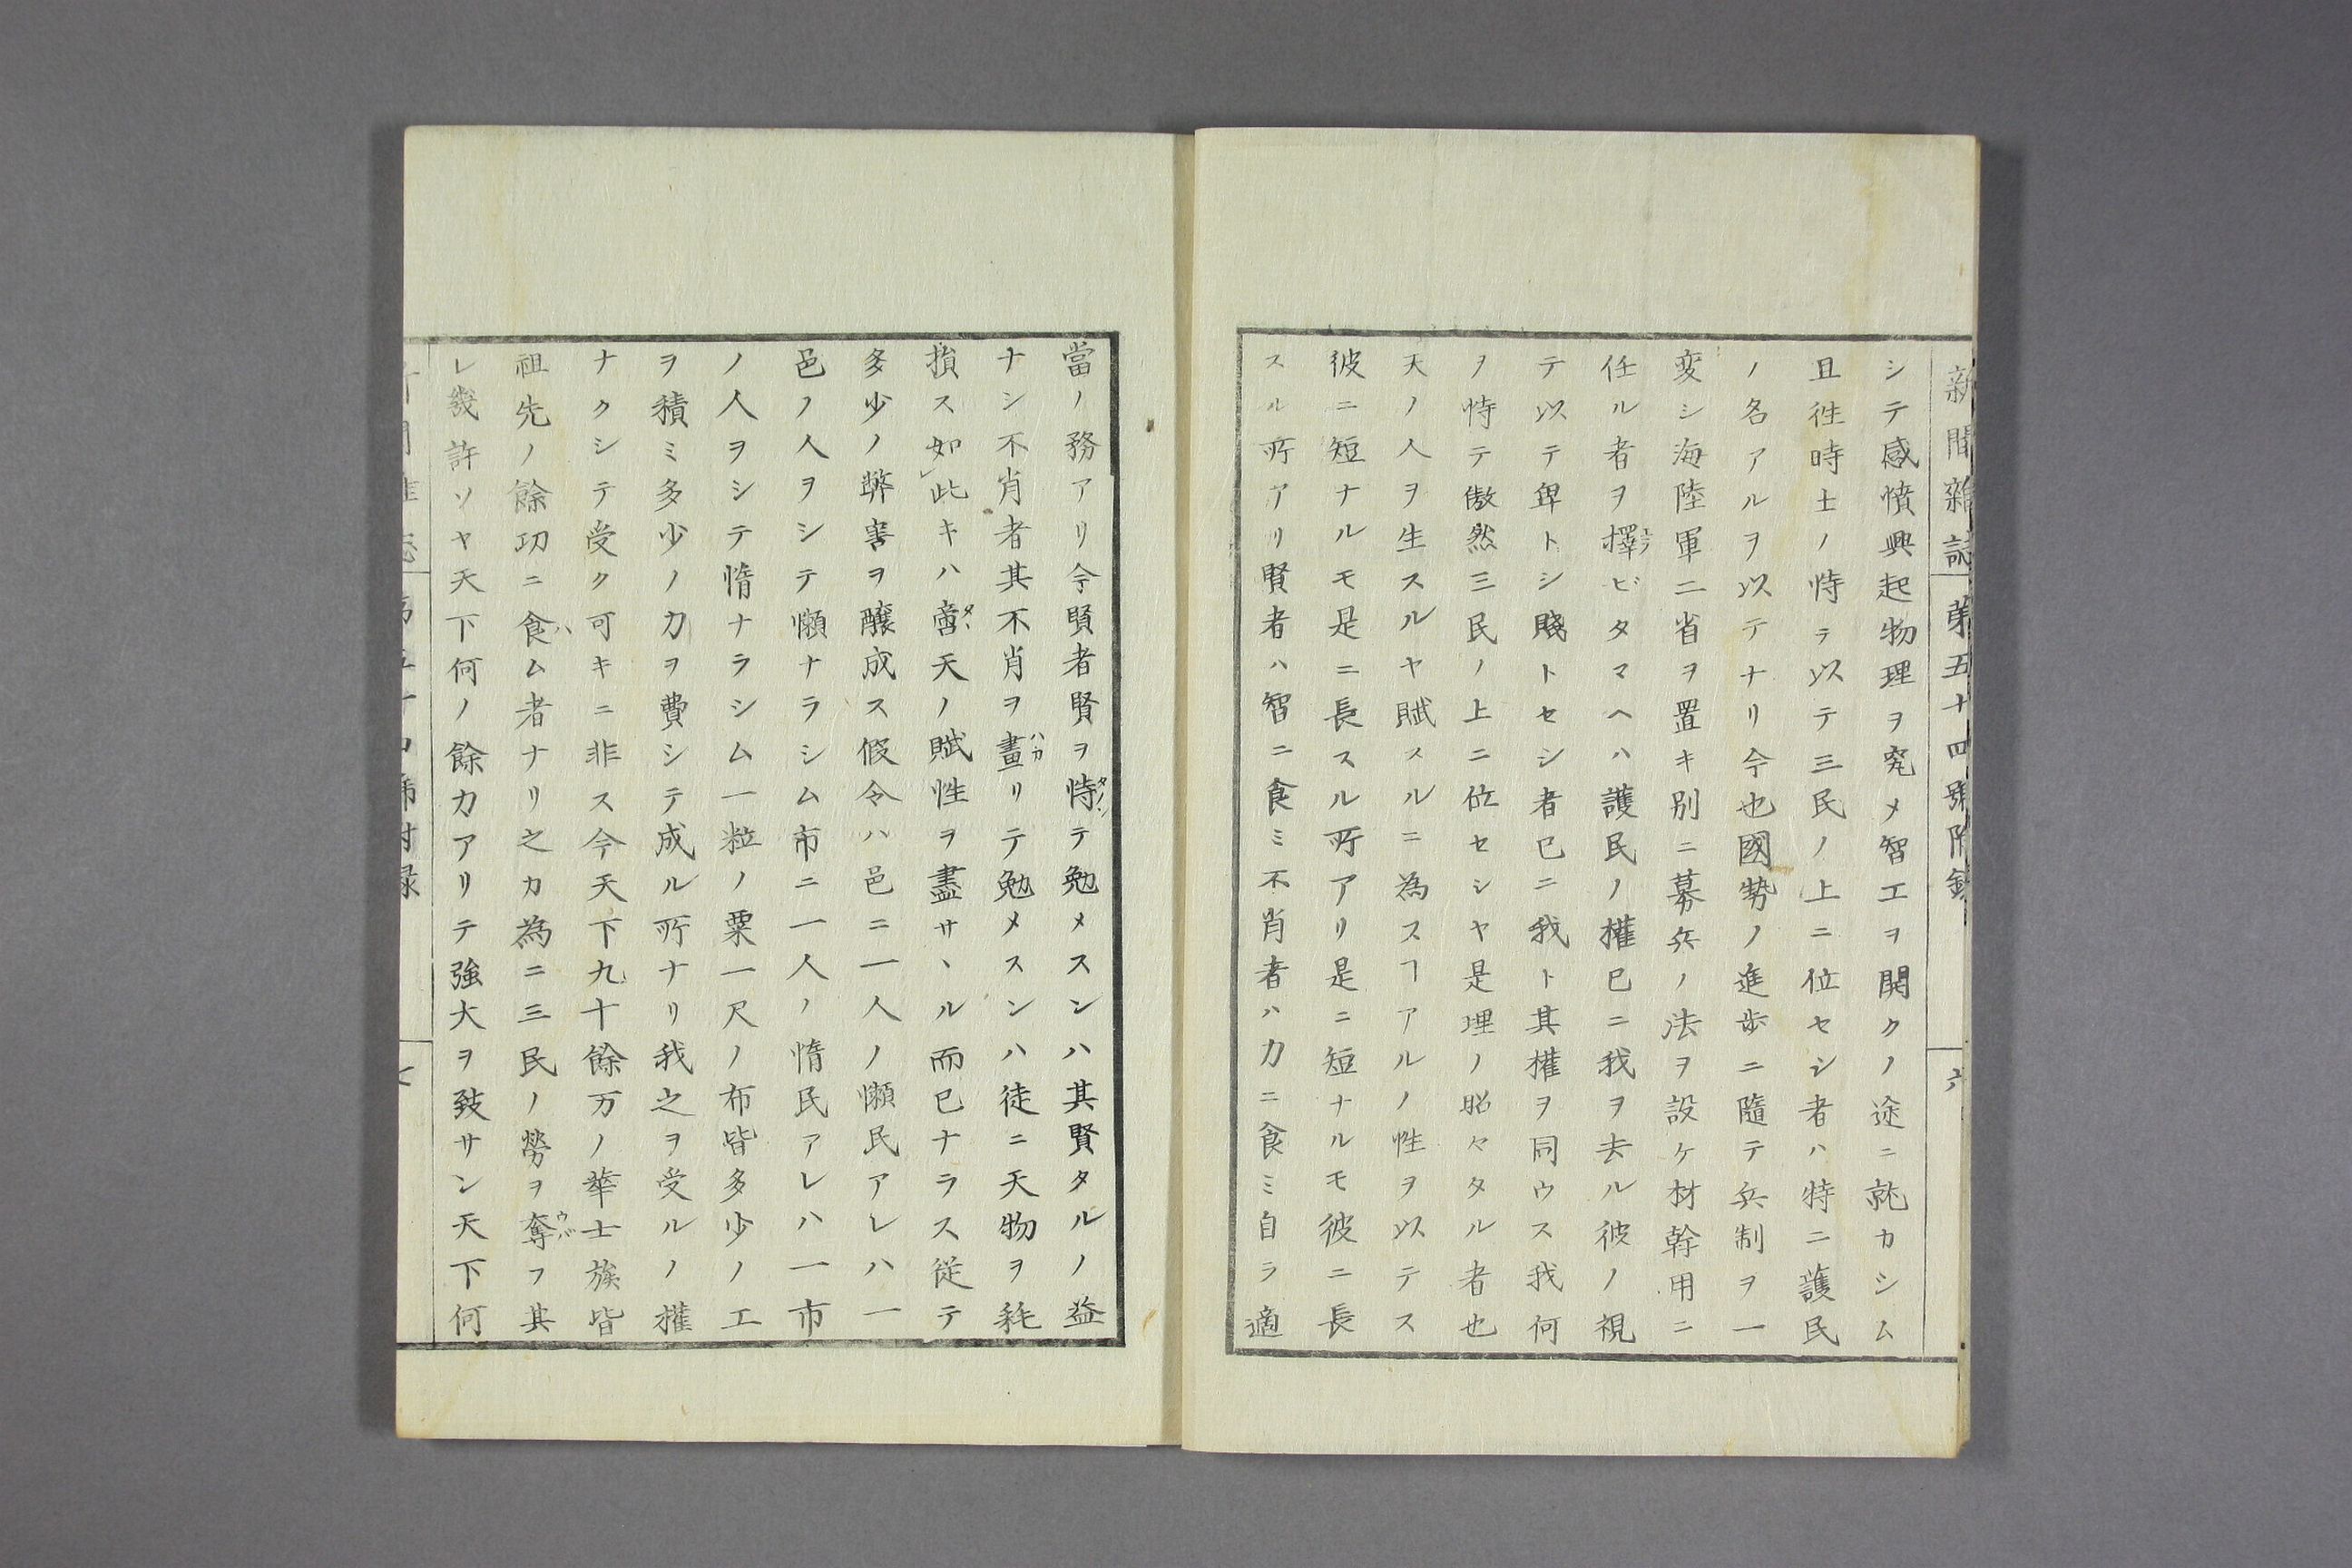 新聞雜誌 第五十四號附録 六
シテ感憤興起物理ヲ究メ智工ヲ開クノ途ニ就カシム
且往時士ノ恃ラ以テ三民ノ上ニ位セシ者ハ特ニ護民
ノ名アルヲ以テナリ今也國勢ノ進歩ニ隨テ兵制ヲ一
変シ海陸軍二省ヲ置キ別ニ募兵ノ法ヲ設ケ材幹用ニ
任ル者ヲ擇ビタマヘハ護民ノ權已ニ我ヲ去ル彼ノ視
テ以テ卑トシ賤トセシ者已ニ我ト其權ヲ同ウス我何
ヲ恃テ傲然三民ノ上ニ位セシヤ是理ノ昭々タル者也
天ノ人ヲ生スルヤ賦スルニ為スヿアルノ性ヲ以テス
彼ニ短ナルモ是ニ長スル所アリ是ニ短ナルモ彼ニ長
スル所アリ賢者ハ智ニ食ミ不肖者ハ力ニ食ミ自ラ適
當ノ務アリ令賢者賢ヲ恃テ勉メスンハ其賢タルノ益
ナシ不肖者其不肖ヲ畫リテ勉メスンハ徒ニ天物ヲ耗
損ス如此キハ啻天ノ賦性ヲ盡サヽル而已ナラス従テ
多少ノ弊害ヲ醸成ス假令ハ邑ニ一人ノ懶民アレハ一
邑ノ人ヲシテ懶ナラシム市ニ一人ノ惰民アレハ一市
ノ人ヲシテ惰ナラシム一粒ノ粟一尺ノ布皆多少ノ工
ヲ積ミ多少ノ力ヲ費シテ成ル所ナリ我之ヲ受ルノ權
ナクシテ受ク可キニ非ス今天下九十餘万ノ華士族皆
祖先ノ餘功ニ食ム者ナリ之カ為ニ三民ノ勞ヲ奪フ其
レ幾許ソヤ天下何ノ餘力アリテ強大ヲ致サン天下何